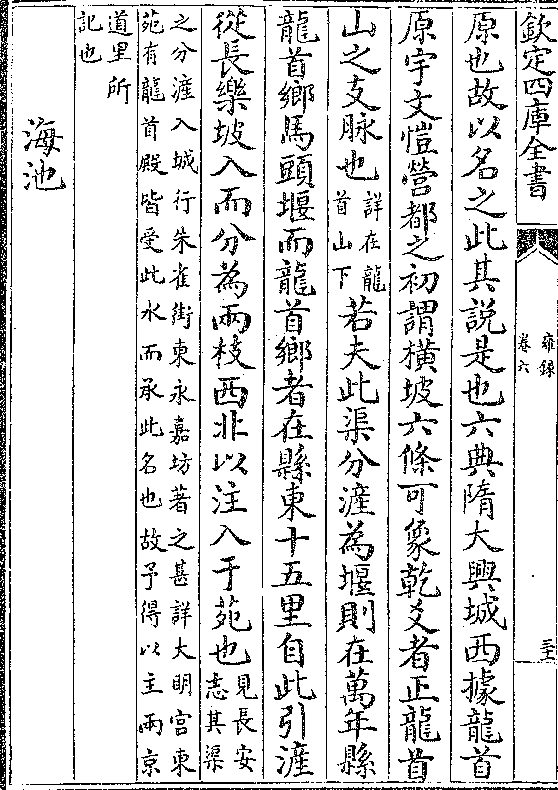 欽定四庫全書
雍錄
卷六
原也故以名之此其說是也六典隋大興城西據龍首
原宇文愷營都之初謂横坡六條可象乾爻者正龍首
山之支脉也詳在龍
首山下若夫此渠分滻為堰則在萬年縣
龍首鄉馬頭堰而龍首鄉者在縣東十五里自此引滻
從長樂坡入而分為兩枝西北以注入于苑也見長安
志其渠
之分滻入城行朱雀街東永嘉坊著之甚詳大明宮東
苑有龍首殿皆受此水而承此名也故予得以主兩京
道里所
記也
海池